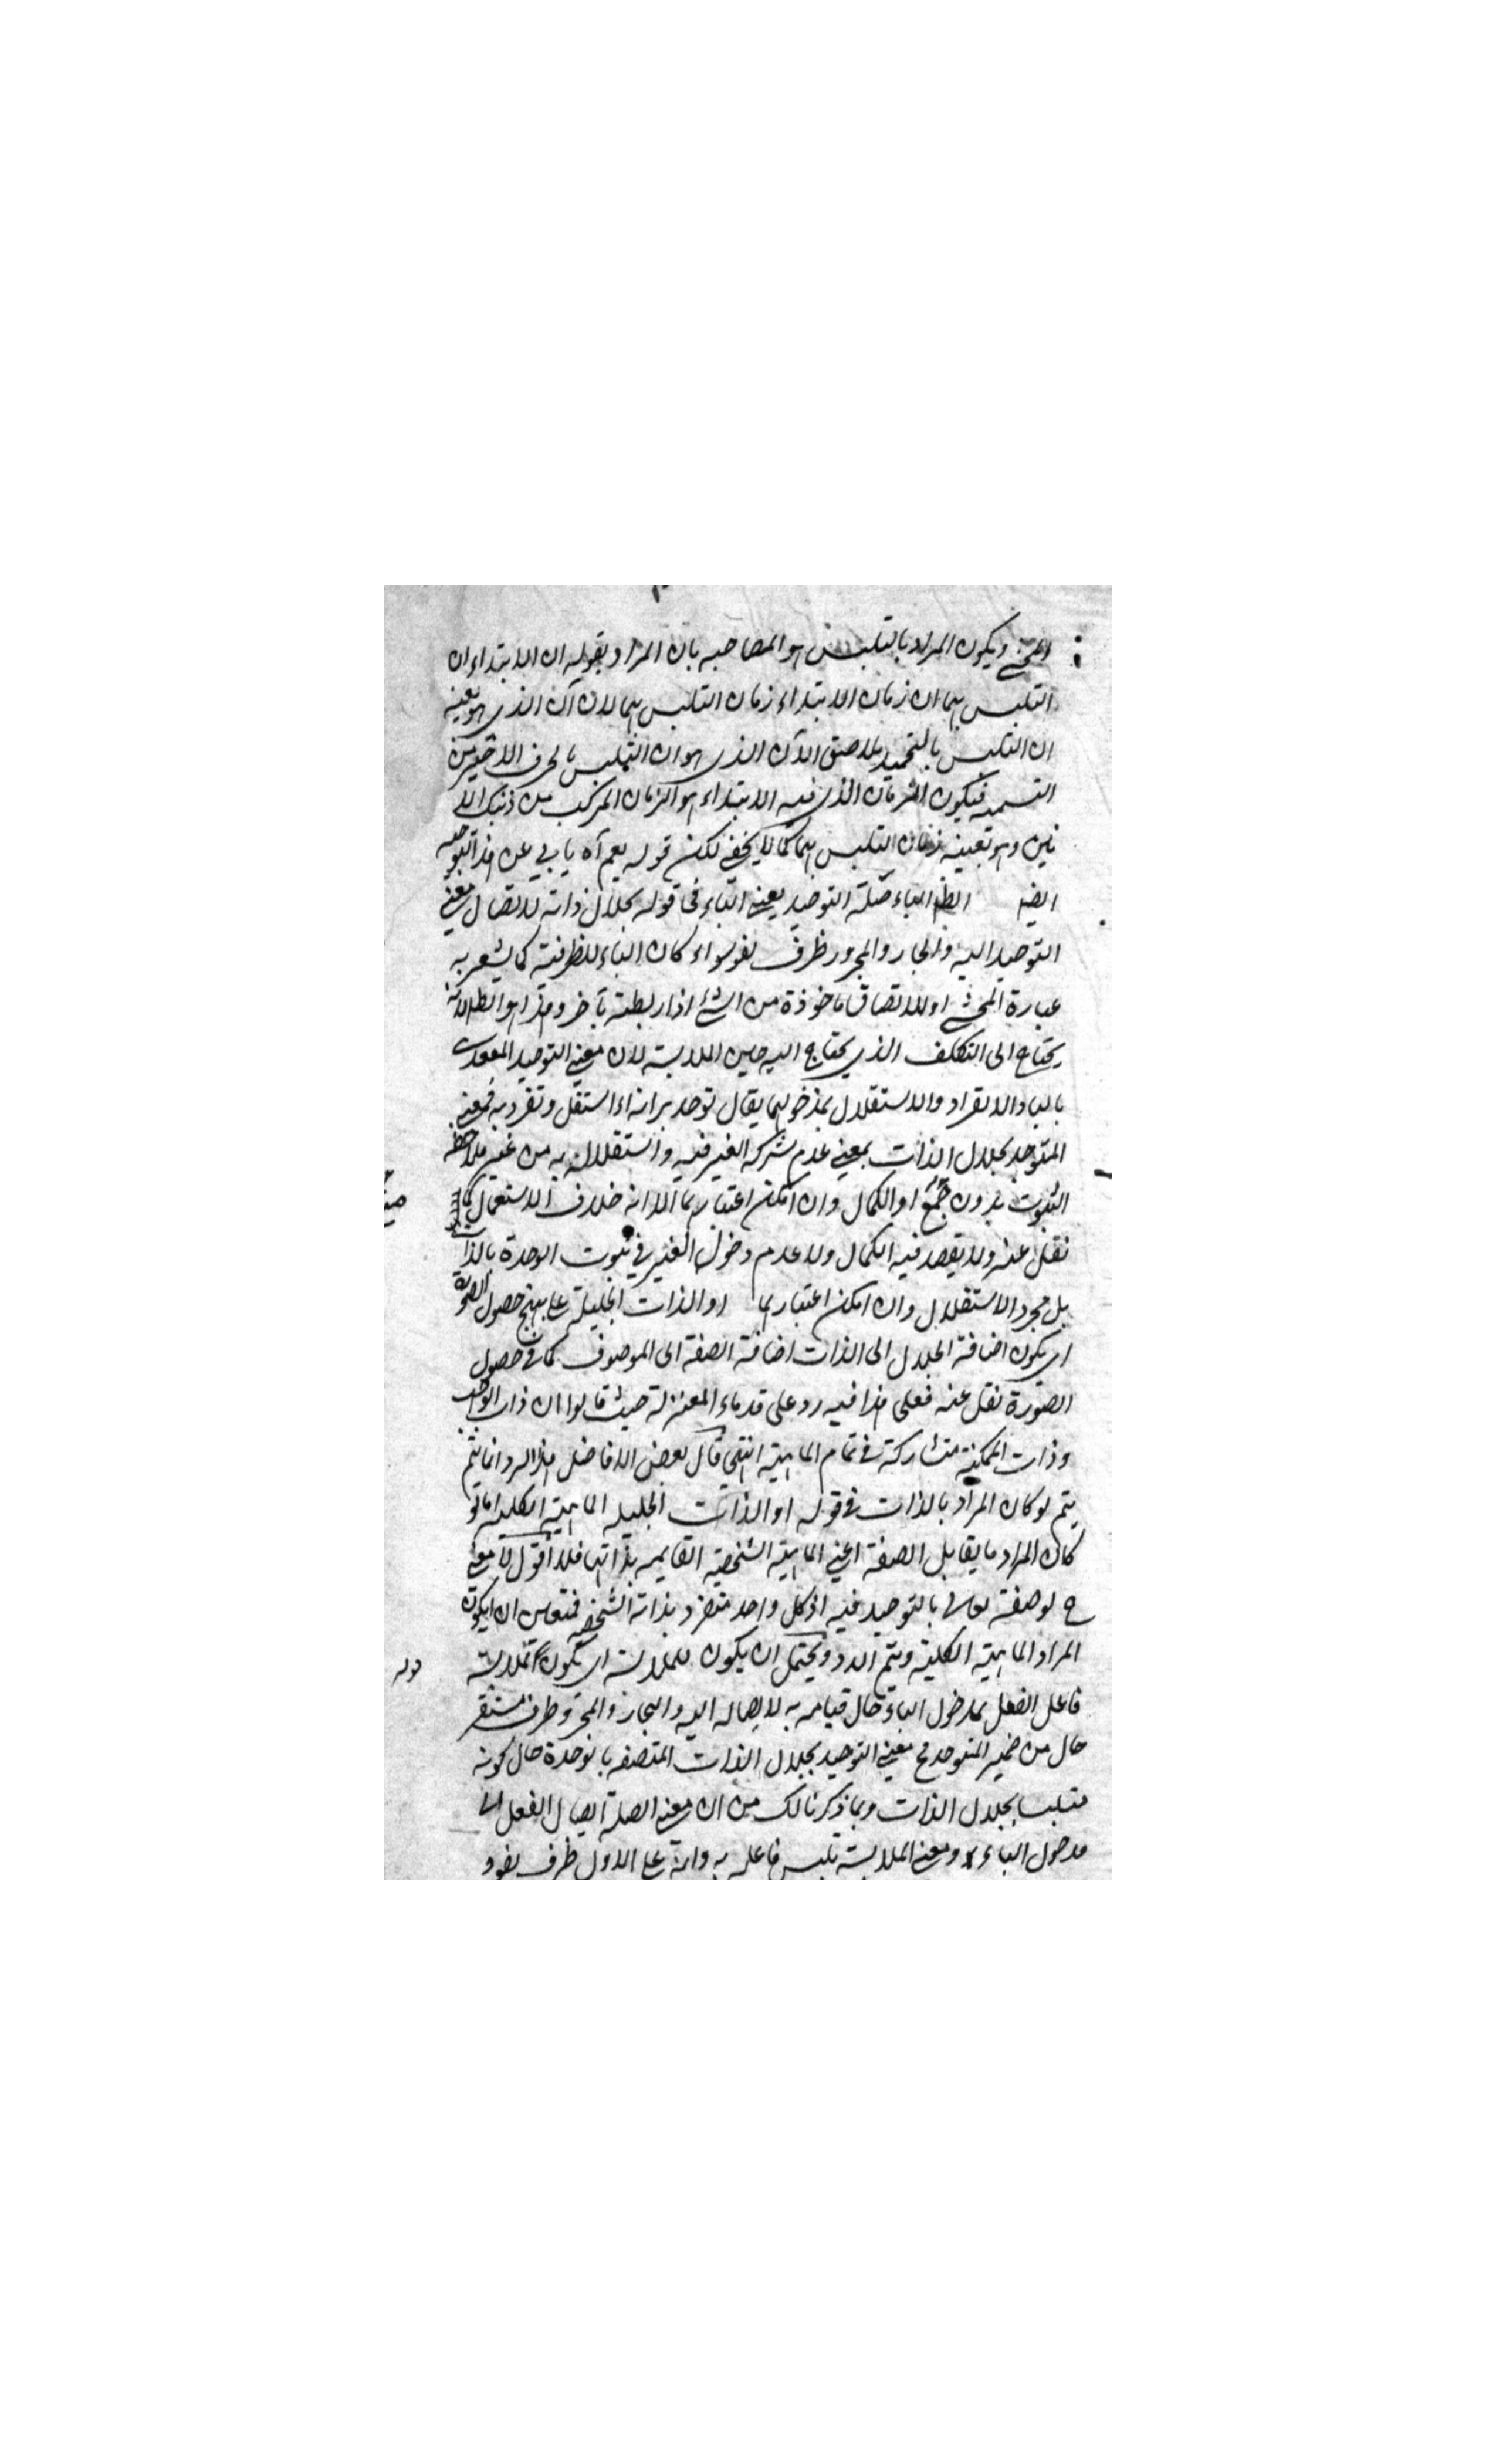 ويكون المراد بالتلبس هو المصاحبه بان المراد بقوله ان الابتداء ان
التلبس بهما ان زمان الابتداء زمان التلبس بهما لان آن الذي هو بعينه
ان التلبس بالتحميد ملاصق الآن الذي هو ان التلبس بالحرف الاخير من
التسميه فيكون الزمان الذي فيه الابتداء هو الزمان المركب من ذينك الا
نين وهو بعينه زمان التلبس بهما كما لا يخفى لكن قوله يعم آه يابي عن هذا التوجيه
ايضا الظ الباء صلة التوحيد يعني الباء في قوله بجلال ذاته لايصال معنى
التوحيد اليه والجار والمجرور ظرف لغو سواء كان الباء للظرفية كما يشعر به
عبارة المحشي او للالتصاق ماخوذة من الشئ اذا ربطته بآخر وهذا هو الظ لانه
يحتاج الى التكلف الذي يحتاج اليه حين الملابسة لان معنى التوحيد المعدى
بالباء الانفراد والاستقلال بمدخولها يقال توحد برايه اذا استقل وتفرد به فمعنى
المتوحد بجلال الذات بمعنى عدم شركه الغير فيه واستقلاله به من غير ملاحظه
الثبوت بدون او الكمال وان امكن اعتبارهما الا انه خلاف الاستعمال كما
نقل عنه ولا يقصد فيه الكمال ولا عدم دخول الغير في ثبوت الوحدة بالذات
بل مجرد الاستقلال وان امكن اعتبارهما او الذات الجليلة على نهج حصول الصورة
اي يكون اضافة الجلال الى الذات اضافة الصفة الى الموصوف كما في حصول
الصورة نقل عنه فعلى هذا فيه رد على قدماء المعتزلة حيث قالوا ان ذات الواجب
وذات الممكنة متشاركة في تمام الماهية انتهى قال بعض الافاضل هذا الرد انما يتم
يتم لو كان المراد بالذات في قوله او الذات الجليله الماهية الكلية اما لو
كان المراد ما يقابل الصفة اعني الماهية الشخصية القايمه بذاتها فلا اقول لا معنى
ح لوصفه تعالى بالتوحيد فيه اذ كل واحد متفرد بذاته الشخصيه فتعين ان يكون
المراد الماهية الكلية ويتم الرد ويحتمل ان يكون للملابسة اي يكون لملابسة
فاعل الفعل بمدخول الباء حال قيامه به لا يصاله اليه والجار والمجرور ظرف مستقر
حال من ضمير المتوحد فح معنى التوحيد بجلال الذات المتصفه بالوحدة حال كونه
متلبسا بجلال الذات وبما ذكرنا لك من ان معنى الصلة ايصال الفعل الى
مدخول الباء ومعنى الملابسة تلبس فاعله به وانه على الاول ظرف لغو و
قوله